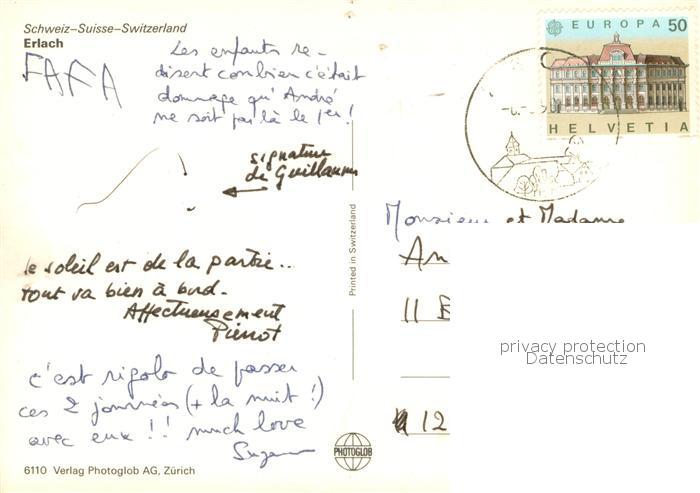 Schweiz–Suisse–Switzerland
Erlach
FAFA
Les enfants re-
disent combien c'était
dommage qu'André
ne soit pas là le 1er!
signature
de Guillaume
le soleil est de la partie..
tout va bien à bord.
Affectueusement
Pierrot
c'est rigolo de passer
ces 2 journées (+ la nuit!)
avec eux!! much love
6110 Verlag Photoglob AG, Zürich
PHOTOGLOB
Printed in Switzerland
EUROPA 50
HELVETIA
Monsieur et Madame
An
11
12
privacy protection
Datenschutz